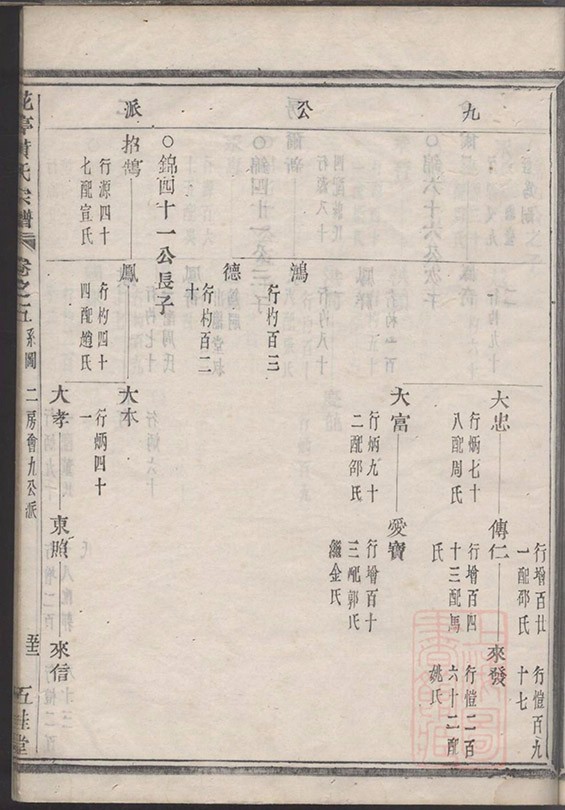 九公派
行增百廿
一配邵氏
行愷百九
十七
大忠
行炳七十
八配周氏
傳仁
行增百四
十三配馬
氏
來發
行愷二百
六十二配
姚氏
大富
行炳九十
二配邵氏
愛寶
行增百十
三配郭氏
繼金氏
鴻
行杓百三
十
德
行杓百二
十
○錦四十一公長子
招鵠
行源四十
七配宣氏
鳳
行杓四十
四配趙氏
大本
行炳四十
一
大孝
東照
來信
花亭黃氏宗譜
卷之五
系圖
二房會九公派
五桂堂